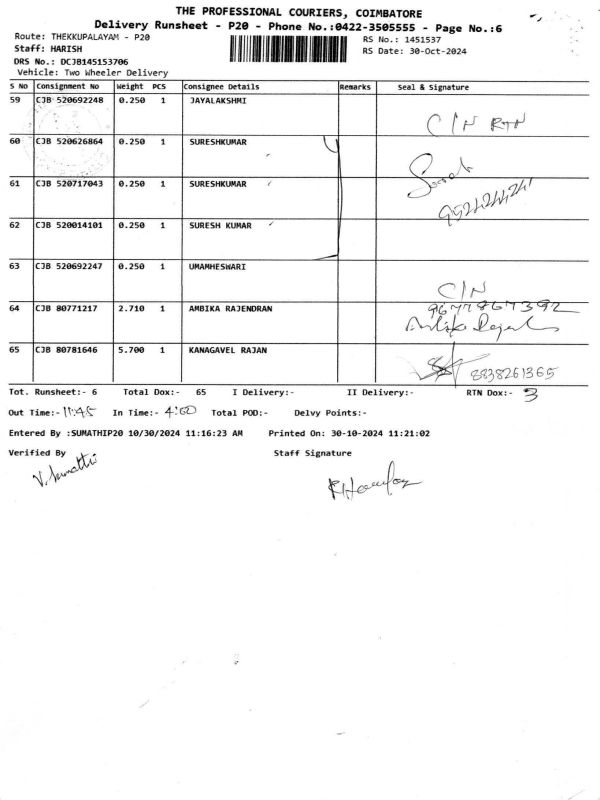 THE PROFESSIONAL COURIERS, COIMBATORE
Delivery Runsheet - P20 - Phone No.:0422-3505555 - Page No.:6
Route: THEKKUPALAYAM - P20
RS No.: 1451537
Staff: HARISH
RS Date: 30-Oct-2024
DRS No.: DCJB145153706
Vehicle: Two Wheeler Delivery
S No Consignment No Weight PCS Consignee Details Remarks Seal & Signature
59 CJB 520692248 0.250 1 JAYALAKSHMI
C/N RTN
60 CJB 520626864 0.250 1 SURESHKUMAR
61 CJB 520717043 0.250 1 SURESHKUMAR
62 CJB 520014101 0.250 1 SURESH KUMAR
63 CJB 520692247 0.250 1 UMAMHESWARI
C/N
64 CJB 80771217 2.710 1 AMBIKA RAJENDRAN
65 CJB 80781646 5.700 1 KANAGAVEL RAJAN
8838261365
Tot. Runsheet:- 6 Total Dox:- 65 I Delivery:- II Delivery:- RTN Dox:- 3
Out Time:- 11:45 In Time:- 4:00 Total POD:- Delvy Points:-
Entered By :SUMATHIP20 10/30/2024 11:16:23 AM Printed On: 30-10-2024 11:21:02
Verified By Staff Signature